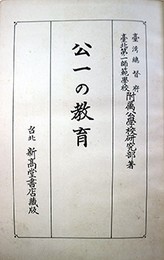 臺灣總督府
臺北第一師範學校
附属公學校研究部著
公一の教育
台北 新高堂書店藏版